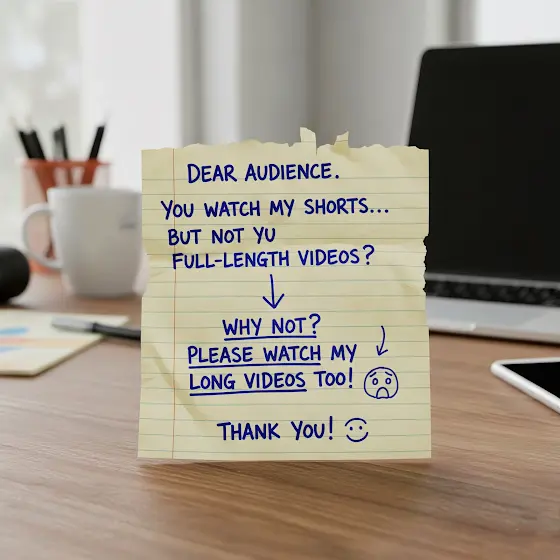 DEAR AUDIENCE.
YOU WATCH MY SHORTS...
BUT NOT YU
FULL-LENGTH VIDEOS?
WHY NOT?
PLEASE WATCH MY
LONG VIDEOS TOO!
THANK YOU!